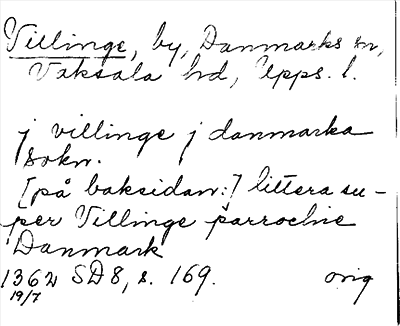 Villinge, by, Danmarks sn,
Vaksala hd, Upps. l.
j villinge j danmarka
sokn.
[på baksidan:] littera su-
per Villinge parrochie
Danmark
1362 SD8, s. 169. orig
19/7